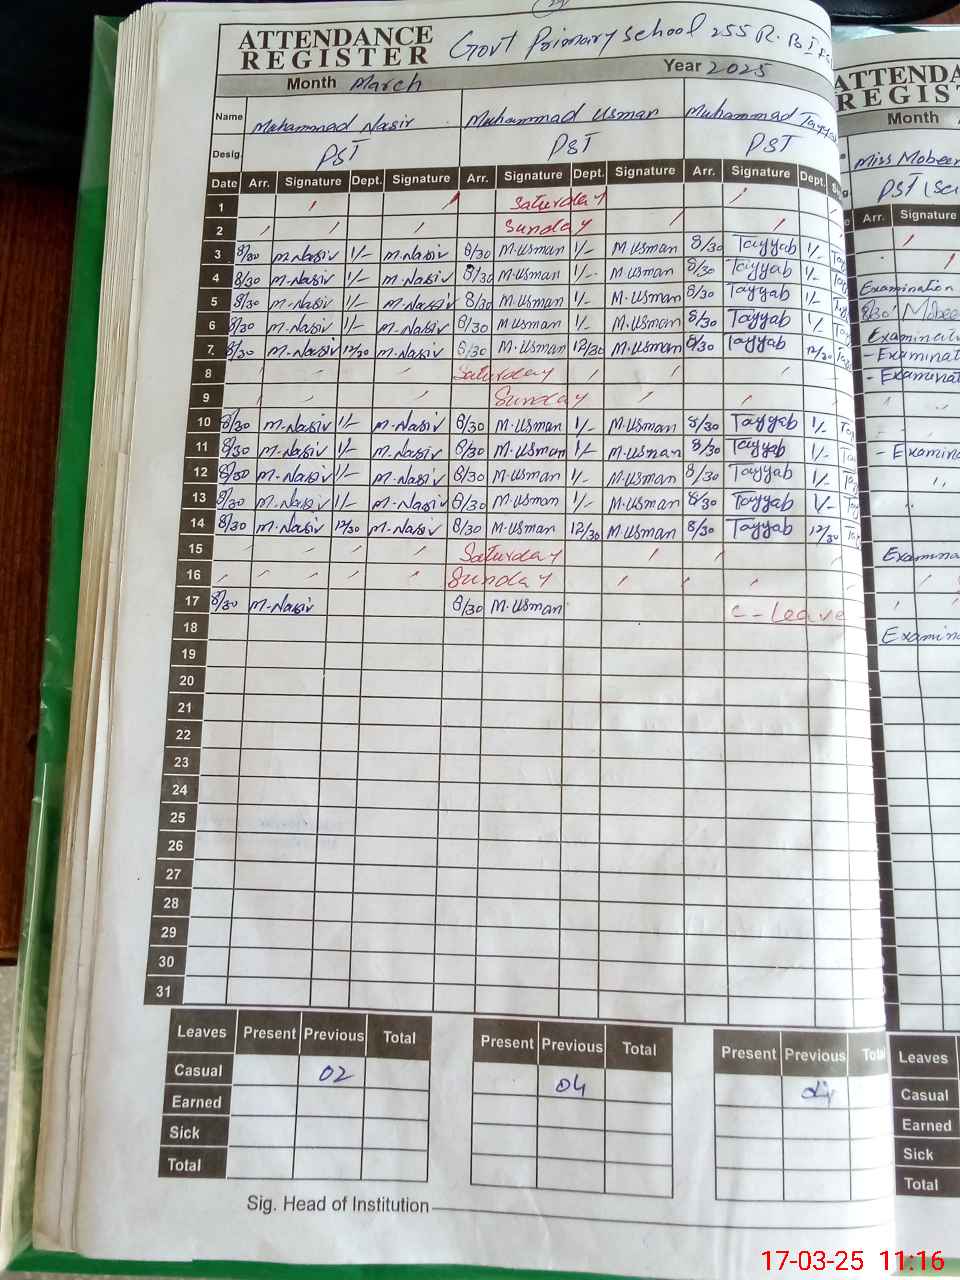 ATTENDANCE REGISTER Govt Primary School 255 R.B
Month March Year 2025
Name Muhammad Nasir Muhammad Usman Muhammad
Desig. PST PST PST
Date Arr. Signature Dept. Signature Arr. Signature Dept. Signature Arr. Signature Dept.
1 Saturday
2 Sunday
3 8/30 M.Nasir 1/- M.Nasir 8/30 M.Usman 1/- M.Usman 8/30 Tayyab 1/-
4 8/30 M.Nasir 1/- M.Nasir 8/30 M.Usman 1/- M.Usman 8/30 Tayyab 1/-
5 8/30 M.Nasir 1/- M.Nasir 8/30 M.Usman 1/- M.Usman 8/30 Tayyab 1/-
6 8/30 M.Nasir 1/- M.Nasir 8/30 M.Usman 1/- M.Usman 8/30 Tayyab 1/-
7 8/30 M.Nasir 12/30 M.Nasir 8/30 M.Usman 12/30 M.Usman 8/30 Tayyab 12/30
8 Saturday
9 Sunday
10 8/30 M.Nasir 1/- M.Nasir 8/30 M.Usman 1/- M.Usman 8/30 Tayyab 1/-
11 8/30 M.Nasir 1/- M.Nasir 8/30 M.Usman 1/- M.Usman 8/30 Tayyab 1/-
12 8/30 M.Nasir 1/- M.Nasir 8/30 M.Usman 1/- M.Usman 8/30 Tayyab 1/-
13 8/30 M.Nasir 1/- M.Nasir 8/30 M.Usman 1/- M.Usman 8/30 Tayyab 1/-
14 8/30 M.Nasir 12/30 M.Nasir 8/30 M.Usman 12/30 M.Usman 8/30 Tayyab 12/30
15 Saturday
16 Sunday
17 8/30 M.Nasir 8/30 M.Usman C-Leave
18
19
20
21
22
23
24
25
26
27
28
29
30
31
Leaves Present Previous Total Present Previous Total Present Previous Total
Casual 02 04 04
Earned
Sick
Total
Sig. Head of Institution
Month
Miss
PST
Arr. Signature
Examination
8/30
Leaves
Casual
Earned
Sick
Total
17-03-25 11:16